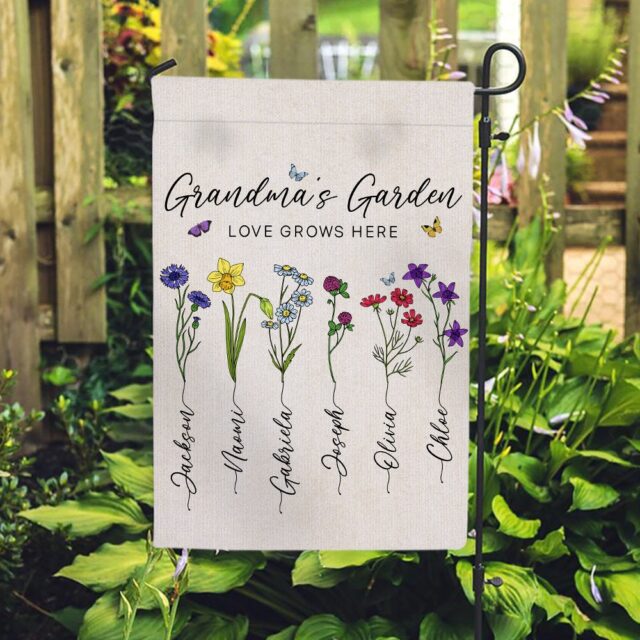 Grandma's Garden
LOVE GROWS HERE
Jackson
Naomi
Gabriela
Joseph
Olivia
Chloe